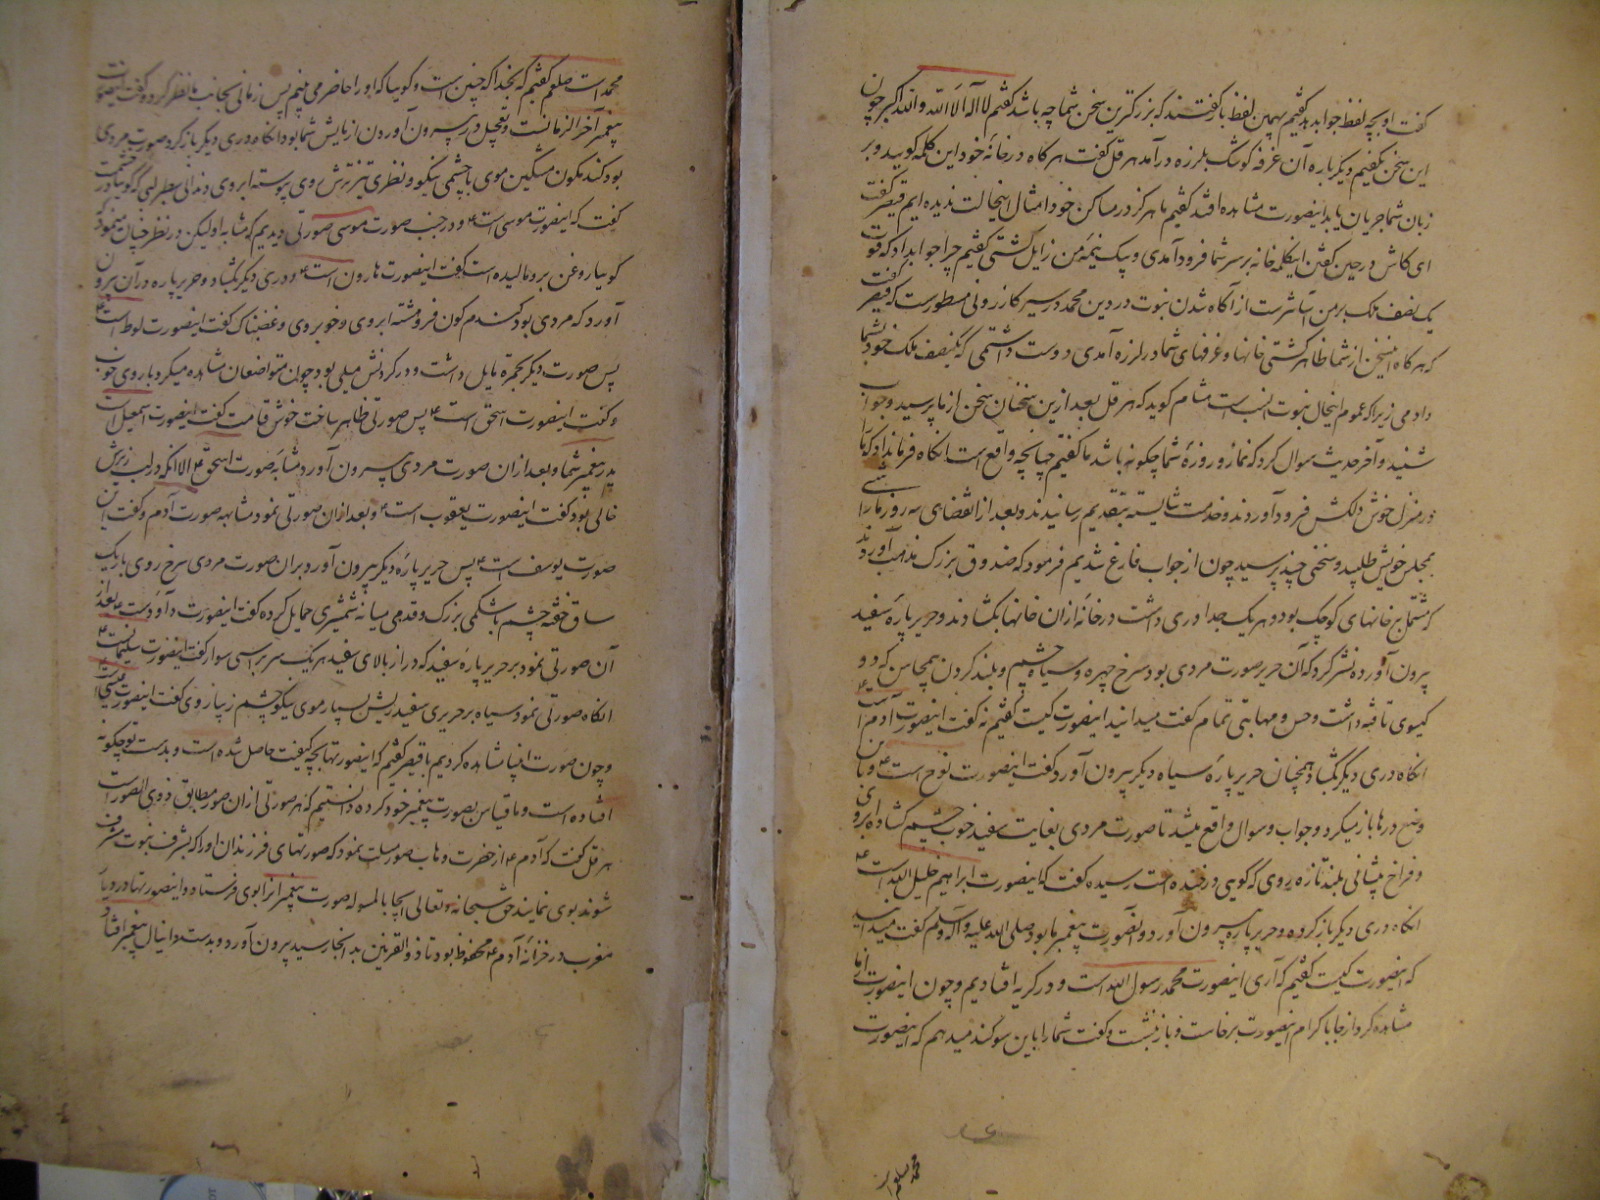 گفت او بچه لفظ جواب دهد گفتیم بهمین لفظ باز گفتند که بزرگترین سخن شما چه باشد گفتیم لا اله الا الله والله اکبر چون
این سخن بگفتیم دیگر باره آن غرفه کوشک بلرزه درآمد هرقل گفت هرگاه در خانهٔ خود این کلمه گویید و بر
زبان شما جریان یابد اینصورت مشاهده افتد گفتیم ما هرگز در مساکن خود امثال اینحالت ندیده ایم قیصر گفت
ای کاش در حین گفتن اینکلمه خانه بر سر شما فرود آمدی و یک نیمهٔ من زایل گشتی گفتیم چرا جواب داد که فوت
یک نصف ملک بر من آسانترست از آگاه شدن نبوت در دین محمد در سیر کازرونی مسطورست که قیصر گفت
که هرگاه اینسخن از شما ظاهر گشتی خانها و غرفهای شما در لرزه آمدی دوست داشتمی که یکنصف ملک خود بشما
دادمی زیرا که عموم اینحال بنبوت انسب است هشام گوید که هرقل بعد ازین سخنان سخن از ما پرسید و جواب
شنید و آخر حدیث سوال کرد که نماز و روزهٔ شما چگونه باشد ما گفتیم چنانچه واقع است آنگاه فرمان داد که ما
در منزل خوش دلکش فرود آوردند و خدمت شایسته بتقدیم رسانیدند و بعد از انقضای سه روز ما را شبی
بمجلس خویش طلبید و سخنی چند پرسید چون از جواب فارغ شدیم فرمود که صندوق بزرگ مذهب آوردند
که مشتمل بر خانهای کوچک بود و هر یک جدا دری داشت در خانهٔ ازان خانها بکشادند و حریر پارهٔ سفید
بیرون آورده نشر کرد که آن حریر صورت مردی بود سرخ چهره و سیاه چشم و بلند گردن بی محاسن که دو
گیسوی تافته داشت و حسن و مهابتی تمام گفت میدانید اینصورت کیست گفتیم نه گفت اینصورت آدم است
آنگاه دری دیگر بکشاد همچنان حریر پارهٔ سیاه دیگر بیرون آورد گفت اینصورت نوح است و بان
وضع درها باز میکرد و جواب و سوال واقع میشد تا صورت مردی بغایت سفید خوب چشم کشاده ابروی
و فراخ پیشانی بلند تازه روی که گویی در خنده است رسیده گفت که اینصورت ابراهیم خلیل الله است
آنگاه دری دیگر باز کرده و حریر پاره بیرون آورد و آنصورت پیغمبر ما بود صلی الله علیه وآله وسلم گفت میدانید
که اینصورت کیست گفتیم که آری اینصورت محمد رسول الله است و در گریه افتادیم و چون اینصورت از ما
مشاهده کرد از جا باکرام اینصورت برخاست و باز نشست و گفت شما را باین سوگند میدهم که اینصورت
محمد صلعم
محمد است صلعم گفتیم که بخدا که چنین است و گوییا که او را حاضر می بینیم پس زمانی بجانب ما نظر کرده گفت اینصورت
پیغمبر آخر الزمانست و تعجیل در بیرون آوردن آزمایش شما بود آنگاه دری دیگر باز کرد صورت مردی
بود گندمگون مشکین موی با چشمی نیکو و نظری تیز ترش روی پیوسته ابروی دندانی سطبر لبی که گوییا در خشمست
گفت که اینصورت موسی است و در جنب صورت موسی صورتی دیدیم که مشابه او لیکن در نظر چنان مینمود که
گوییا روغن برو مالیده است گفت اینصورت هارون است و دری دیگر بکشاد و حریر پاره دران بیرون
آورد که مردی بود گندم گون فروهشته ابروی و خوبروی و غضبناک گفت اینصورت لوط است
پس صورت دیگر بحمرة مایل داشت و در گردنش میلی بود چون متواضعان مشاهده میکرد با روی خوب
و گفت اینصورت اسحق است پس صورتی ظاهر ساخت خوش قامت گفت اینصورت اسمعیل است
پدر پیغمبر شما و بعد ازان صورت مردی بیرون آورد مشابه صورت اسحق الا آنکه در لب زیرش
خالی بود گفت اینصورت یعقوب است و بعد ازان صورتی نمود مشابهه صورت آدم و گفت این
صورت یوسف است پس حریر پارهٔ دیگر بیرون آورد بران صورت مردی سرخ روی باریک
ساق خفته چشم با شکمی بزرگ و قدمی میانه شمشیری حمایل کرده گفت اینصورت داود است بعد از
آن صورتی نمود بر حریر پارهٔ سفید که دراز بالای سفید هر یک سر بر اسبی سوار گفت اینصورت سلیمانست
آنگاه صورتی نمود سیاه بر حریری سفید ریش بسیار موی نیکو چشم زیبا روی گفت اینصورت عیسی است
و چون صورت انبیا مشاهده کردیم با قیصر گفتیم که اینصورتها بچه کیفیت حاصل شده است و بدست تو چگونه
افتاده است و ما قیاس بصورت پیغمبر خود کرده دانستیم که هر صورتی ازان صور مطابق ذوی الصور است
هرقل گفت که آدم از حضرت وهاب صور مسلت نمود که صورتهای فرزندان او را که بشرف نبوت مشرف
شوند بوی نمایند حق سبحانه و تعالی ایجابا لمسوله صورت پیغمبرانرا بوی فرستاد و اینصورتها در زیر
مغرب در خزانهٔ آدم محفوظ بود تا ذو القرنین بدانجا رسید بیرون آورد و بدست دانیال پیغمبر افتاد